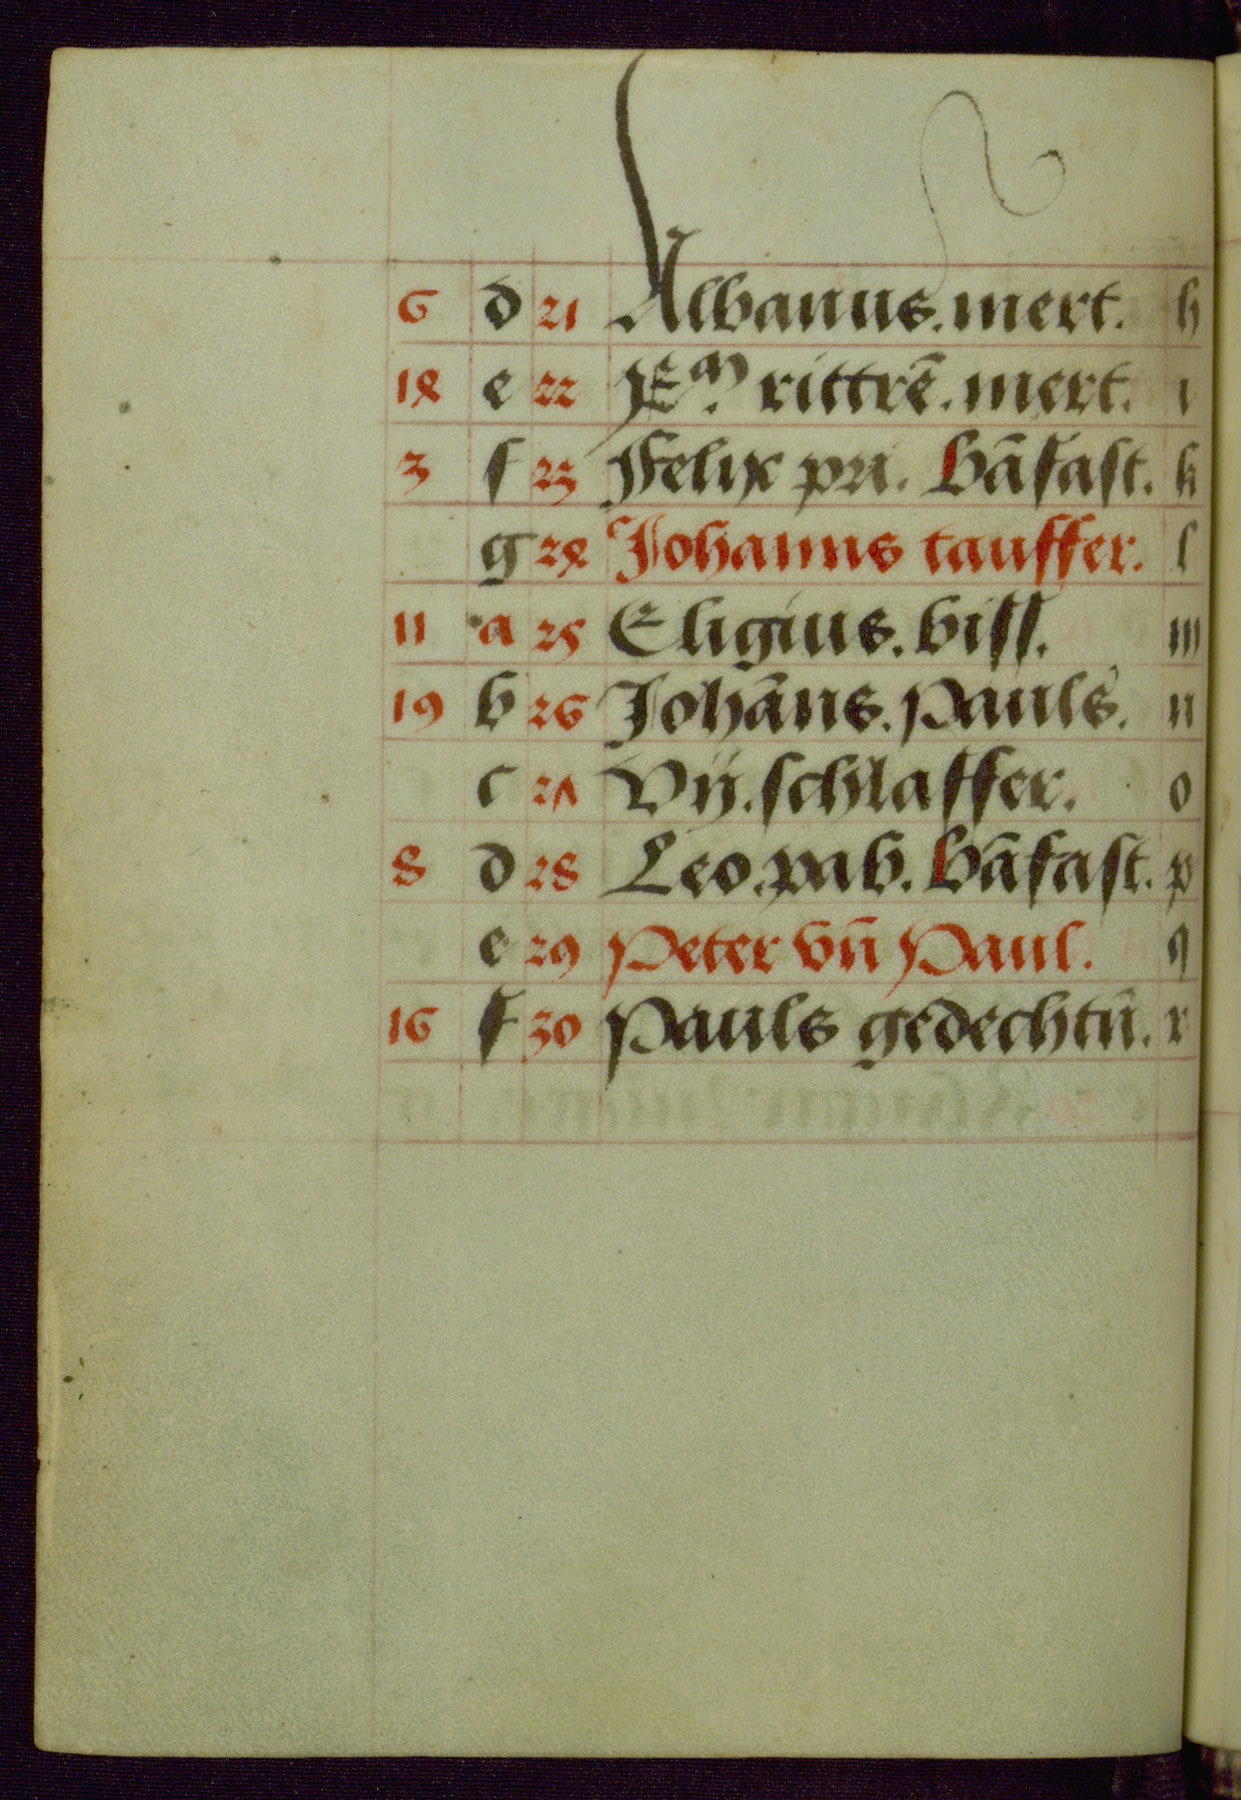 6 d 21 Albanus. mert. h
14 e 22 Xm. rittrē. mert. i
3 f 23 Felix pri. bāfast. k
g 24 Johanns tauffer. l
11 a 25 Eligius. biss. m
19 b 26 Johāns. Pauls. n
c 27 Vij. schlaffer. o
8 d 28 Leo. pab. bāfast. p
e 29 Peter vn̄ Paul. q
16 f 30 Pauls gedechtn̄. r